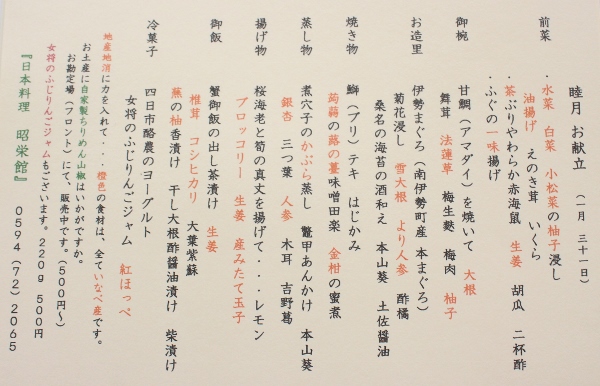 睦月 お献立 （一月 三十一日）
前菜
・水菜 白菜 小松菜の柚子浸し
油揚げ えのき茸 いくら
・茶ぶりやわらか赤海鼠 生姜 胡瓜 二杯酢
・ふぐの一味揚げ
御椀
甘鯛（アマダイ）を焼いて 大根
舞茸 法蓮草 梅生麩 梅肉 柚子
お造里
伊勢まぐろ（南伊勢町産 本まぐろ）
菊花浸し 雪大根 より人参 酢橘
桑名の海苔の酒和え 本山葵 土佐醤油
焼き物
鰤（ブリ）テキ はじかみ
蒟蒻の蕗の薹味噌田楽 金柑の蜜煮
蒸し物
煮穴子のかぶら蒸し 鼈甲あんかけ 本山葵
銀杏 三つ葉 人参 木耳 吉野葛
揚げ物
桜海老と筍の真丈を揚げて・・・レモン
ブロッコリー 生姜 産みたて玉子
御飯
蟹御飯の出し茶漬け 生姜
椎茸 コシヒカリ 大葉紫蘇
蕪の柚香漬け 干し大根酢醤油漬け 柴漬け
冷菓子
四日市酪農のヨーグルト
女将のふじりんごジャム 紅ほっぺ
地産地消に力を入れて・・・橙色の食材は、全ていなべ産です。
お土産に自家製ちりめん山椒はいかがですか。
お勘定場（フロント）にて、販売中です。（500円～）
女将のふじりんごジャムもございます。220g 500円
『日本料理 昭栄館』 0594（72）2065